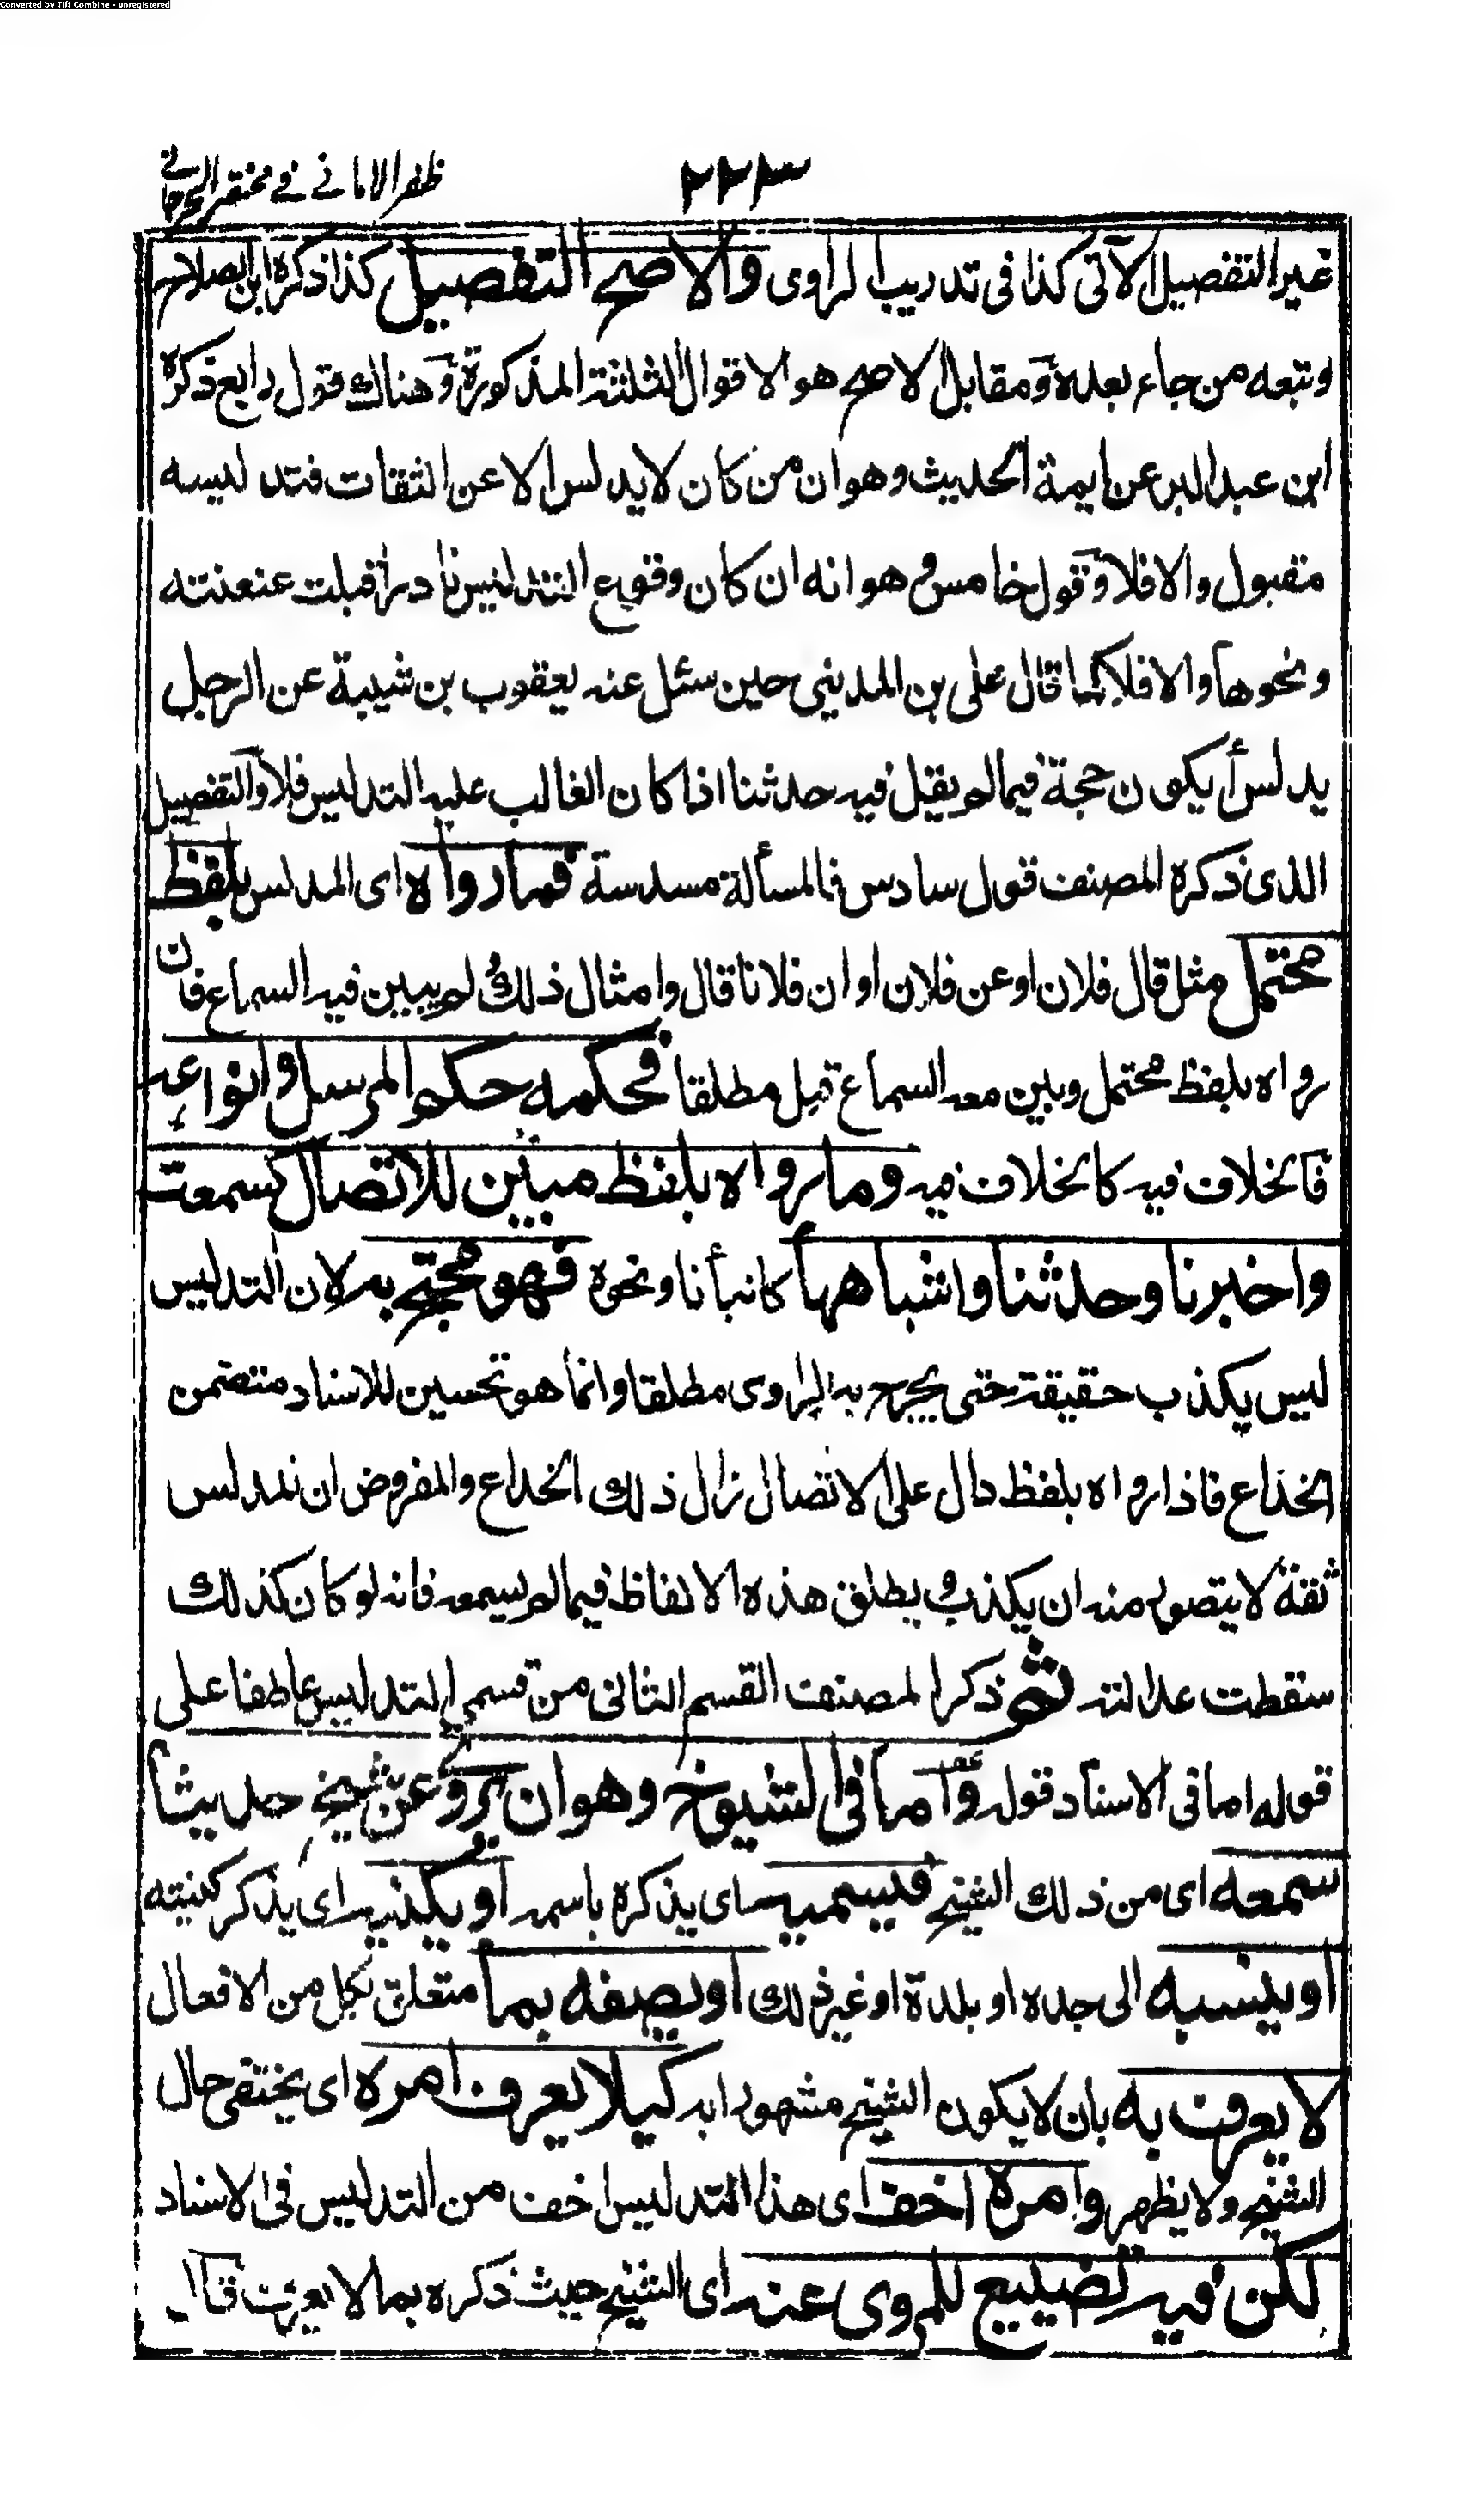 Converted by Tiff Combine - unregistered
ظفر الامانے فے مختصر الجرجانے
٢٢٣
غير التفصيل الآتى كذا فى تدريب الراوى والاصح التفصيل كذا ذكره ابن الصلاح
وتبعه من جاء بعده ومقابل الاصح هو الاقوال الثلثة المذكورة وهناك قول رابع ذكره
ابن عبد البر عن ايمة الحديث وهو ان من كان لا يدلس الا عن الثقات فتدليسه
مقبول والا فلا وقول خامس وهو انه ان كان وقوع التدليس نادرا قبلت عنعنته
ونحوها والا فلا كما قال على بن المدينى حين سئل عنه يعقوب بن شيبة عن الرجل
يدلس أيكون حجة فيما لم يقل فيه حدثنا اذا كان الغالب عليه التدليس فلا والتفصيل
الذى ذكره المصنف قول سادس فالمسألة مسدسة فما رواه اى المدلس بلفظ
محتمل مثل قال فلان او عن فلان او ان فلانا قال وامثال ذلك لم يبين فيه السماع فان
رواه بلفظ محتمل وبين معه السماع قبل مطلقا فحكمه حكم المرسل وانواعه
فالخلاف فيه كالخلاف فيه وما رواه بلفظ مبين للاتصال كسمعت
واخبرنا وحدثنا واشباهها كانبأنا ونحوه فهو محتج به لان التدليس
ليس بكذب حقيقة حتى يجرح به الراوى مطلقا وانما هو تحسين للاسناد متضمن
الخداع فاذا رواه بلفظ دال على الاتصال زال ذلك الخداع والمفروض ان المدلس
ثقة لا يتصور منه ان يكذب ويطلق هذه الالفاظ فيما لم يسمعه فانه لو كان كذلك
سقطت عدالته ثم ذكر المصنف القسم الثانى من قسمى التدليس عاطفا على
قوله اما فى الاسناد قوله واما فى الشيوخ وهو ان يروى عن شيخ حديثا
سمعه اى من ذلك الشيخ فيسميه اى يذكره باسمه او يكنيه اى يذكر كنيته
او ينسبه الى جده او بلدة او غير ذلك او يصفه بما متعلق بكل من الافعال
لا يعرف به بان لا يكون الشيخ مشهورا به كيلا يعرف امره اى يختفى حال
الشيخ ولا يظهر وامره اخف اى هذا التدليس اخف من التدليس فى الاسناد
لكن فيه تضييع للمروى عنه اى الشيخ حيث ذكره بما لا يعرف قال